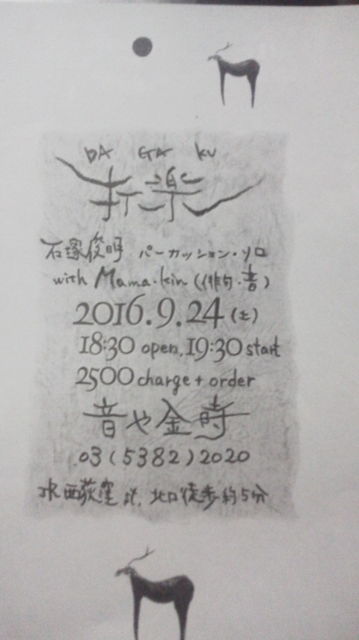 DA GA KU
打楽
石塚俊明 パーカッション・ソロ
with Mama・kin (俳句・書)
2016.9.24 (土)
18:30 open, 19:30 start
2500 charge + order
音や金時
03 (5382) 2020
JR 西荻窪 北口徒歩約5分